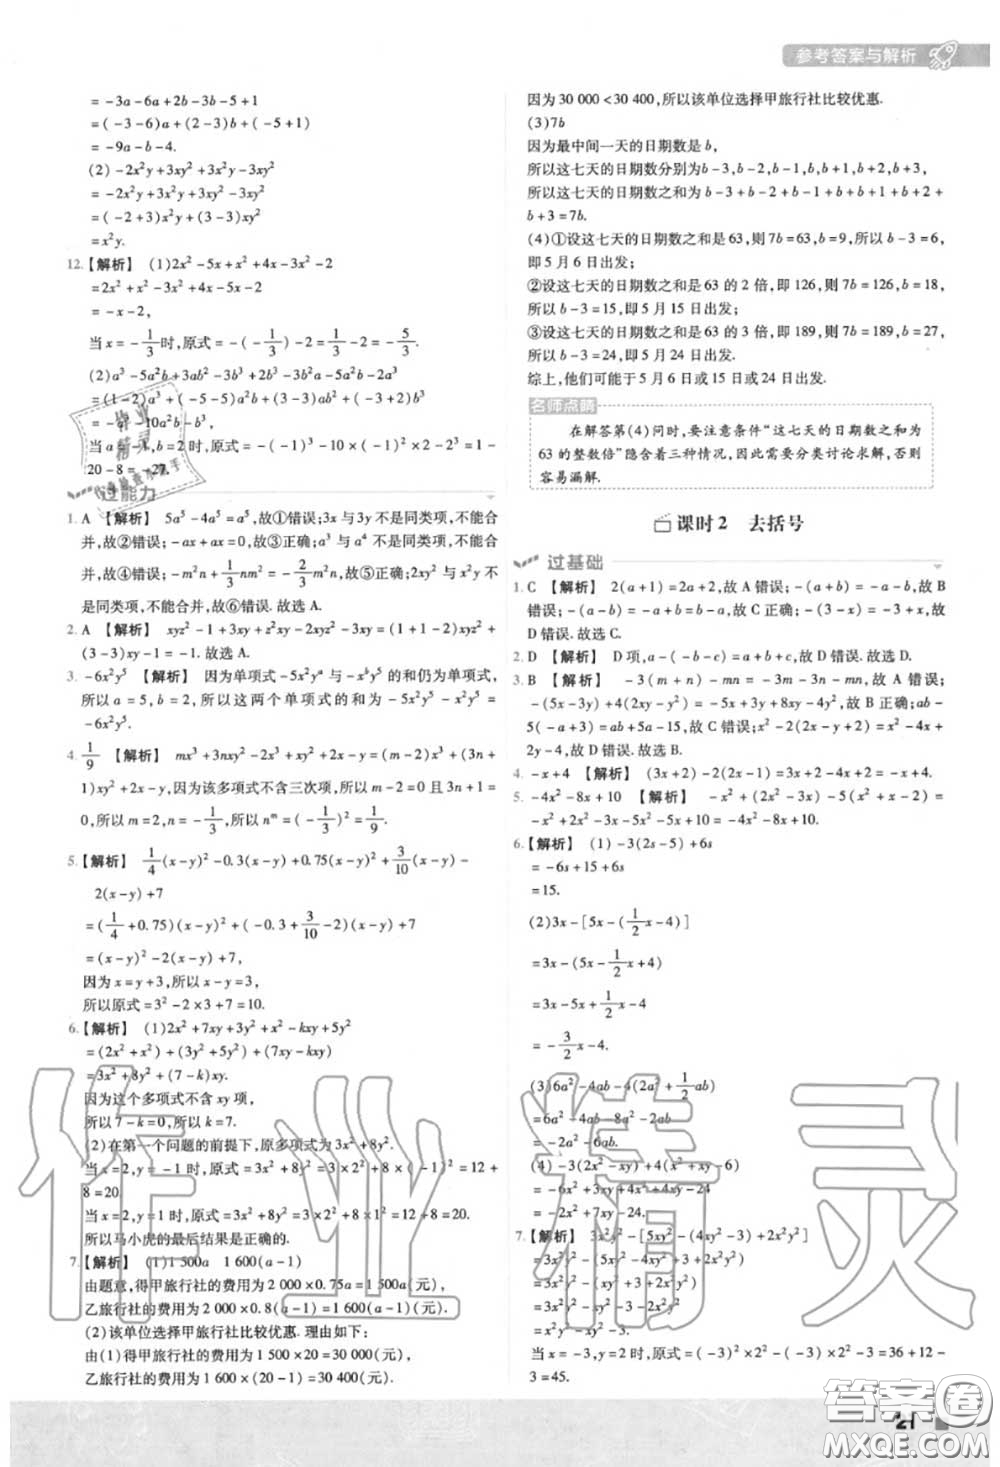 参考答案与解析
= -3a-6a+2b-3b-5+1
= (-3-6)a+(2-3)b+(-5+1)
= -9a-b-4.
(2) -2x²y+3xy²+3x²y-3xy²
= -2x²y+3x²y+3xy²-3xy²
= (-2+3)x²y+(3-3)xy²
= x²y.
12.【解析】 (1)2x²-5x+x²+4x-3x²-2
= 2x²+x²-3x²-5x+4x-2
= -x-2,
当 x = -1/3 时,原式 = -(-1/3)-2 = 1/3-2 = -5/3.
(2)a³-5a²b+3ab²-3b³-2a³+2b³-3ab²-5a²b
= (1-2)a³+(-5-5)a²b+(3-3)ab²+(-3+2)b³
= -a³-10a²b-b³,
当 a = -1,b = 2 时,原式 = -(-1)³-10×(-1)²×2-2³ = 1-
20-8 = -27.
过能力
1. A 【解析】 5a⁵-4a⁵=a⁵,故①错误;3x与3y不是同类项,不能合
并,故②错误;-ax+ax=0,故③正确;a³与a⁴不是同类项,不能合
并,故④错误;-m²n+1/3m²n=-2/3m²n,故⑤正确;2xy²与x²y不
是同类项,不能合并,故⑥错误.故选A.
2. A 【解析】 xyz²-1+3xy+z²xy-2xyz²-3xy=(1+1-2)xyz²+
(3-3)xy-1=-1.故选A.
3. -6x²y⁵ 【解析】 因为单项式-5x²yᵃ与-xᵇy⁵的和仍为单项式,
所以 a=5,b=2,所以这两个单项式的和为 -5x²y⁵-x²y⁵=
-6x²y⁵.
4. 1/9 【解析】 mx³+3nxy²-2x³+xy²+2x-y=(m-2)x³+(3n+
1)xy²+2x-y,因为该多项式不含三次项,所以m-2=0且3n+1=
0,所以m=2,n=-1/3,所以nᵐ=(-1/3)²=1/9.
5.【解析】 1/4(x-y)²-0.3(x-y)+0.75(x-y)²+3/10(x-y)-
2(x-y)+7
=(1/4+0.75)(x-y)²+(-0.3+3/10-2)(x-y)+7
=(x-y)²-2(x-y)+7,
因为x=y+3,所以x-y=3,
所以原式=3²-2×3+7=10.
6.【解析】 (1)2x²+7xy+3y²+x²-kxy+5y²
=(2x²+x²)+(3y²+5y²)+(7xy-kxy)
=3x²+8y²+(7-k)xy.
因为这个多项式不含xy项,
所以7-k=0,所以k=7.
(2)在第一个问题的前提下,原多项式为3x²+8y².
当x=2,y=-1时,原式=3x²+8y²=3×2²+8×(-1)²=12+
8=20.
当x=2,y=1时,原式=3x²+8y²=3×2²+8×1²=12+8=20.
所以马小虎的最后结果是正确的.
7.【解析】 (1)1 500a 1 600(a-1)
由题意,得甲旅行社的费用为2 000×0.75a=1 500a(元),
乙旅行社的费用为2 000×0.8(a-1)=1 600(a-1)(元).
(2)该单位选择甲旅行社比较优惠.理由如下:
由(1)得甲旅行社的费用为1 500×20=30 000(元),
乙旅行社的费用为1 600×(20-1)=30 400(元).
因为30 000<30 400,所以该单位选择甲旅行社比较优惠.
(3)7b
因为最中间一天的日期数是b,
所以这七天的日期数分别为b-3,b-2,b-1,b,b+1,b+2,b+3,
所以这七天的日期数之和为b-3+b-2+b-1+b+b+1+b+2+
b+3=7b.
(4)①设这七天的日期数之和是63,则7b=63,b=9,所以b-3=6,
即5月6日出发;
②设这七天的日期数之和是63的2倍,即126,则7b=126,b=18,
所以b-3=15,即5月15日出发;
③设这七天的日期数之和是63的3倍,即189,则7b=189,b=27,
所以b-3=24,即5月24日出发.
综上,他们可能于5月6日或15日或24日出发.
名师点睛
在解答第(4)问时,要注意条件“这七天的日期数之和为
63的整数倍”隐含着三种情况,因此需要分类讨论求解,否则
容易漏解.
课时2 去括号
过基础
1. C 【解析】 2(a+1)=2a+2,故A错误;-(a+b)=-a-b,故B
错误;-(a-b)=-a+b,故C正确;-(3-x)=-3+x,故
D错误.故选C.
2. D 【解析】 D项,a-(-b-c)=a+b+c,故D错误.故选D.
3. B 【解析】 -3(m+n)-mn=-3m-3n-mn,故A错误;
-(5x-3y)+4(2xy-y²)=-5x+3y+8xy-4y²,故B正确;ab-
5(-a+3)=ab+5a-15,故C错误;x²-2(2x-y+2)=x²-4x+
2y-4,故D错误.故选B.
4. -x+4 【解析】 (3x+2)-2(2x-1)=3x+2-4x+2=-x+4.
5. -4x²-8x+10 【解析】 -x²+(2x²-3x)-5(x²+x-2)=
-x²+2x²-3x-5x²-5x+10=-4x²-8x+10.
6.【解析】 (1)-3(2s-5)+6s
=-6s+15+6s
=15.
(2)3x-[5x-(1/2x-4)]
=3x-(5x-1/2x+4)
=3x-5x+1/2x-4
=-3/2x-4.
(3)6a²-4ab-4(2a²+1/2ab)
=6a²-4ab-8a²-2ab
=-2a²-6ab.
(4)-3(2x²-xy)+4(x²+xy-6)
=-6x²+3xy+4x²+4xy-24
=-2x²+7xy-24.
7.【解析】 3x²y-[5xy²-(4xy²-3)+2x²y]
=3x²y-(5xy²-4xy²+3+2x²y)
=3x²y-(xy²+3+2x²y)
=3x²y-xy²-3-2x²y
=x²y-xy²-3.
当x=-3,y=2时,原式=(-3)²×2-(-3)×2²-3=18+12-
3=27.
21
作业精灵
答案圈
MXQE.COM